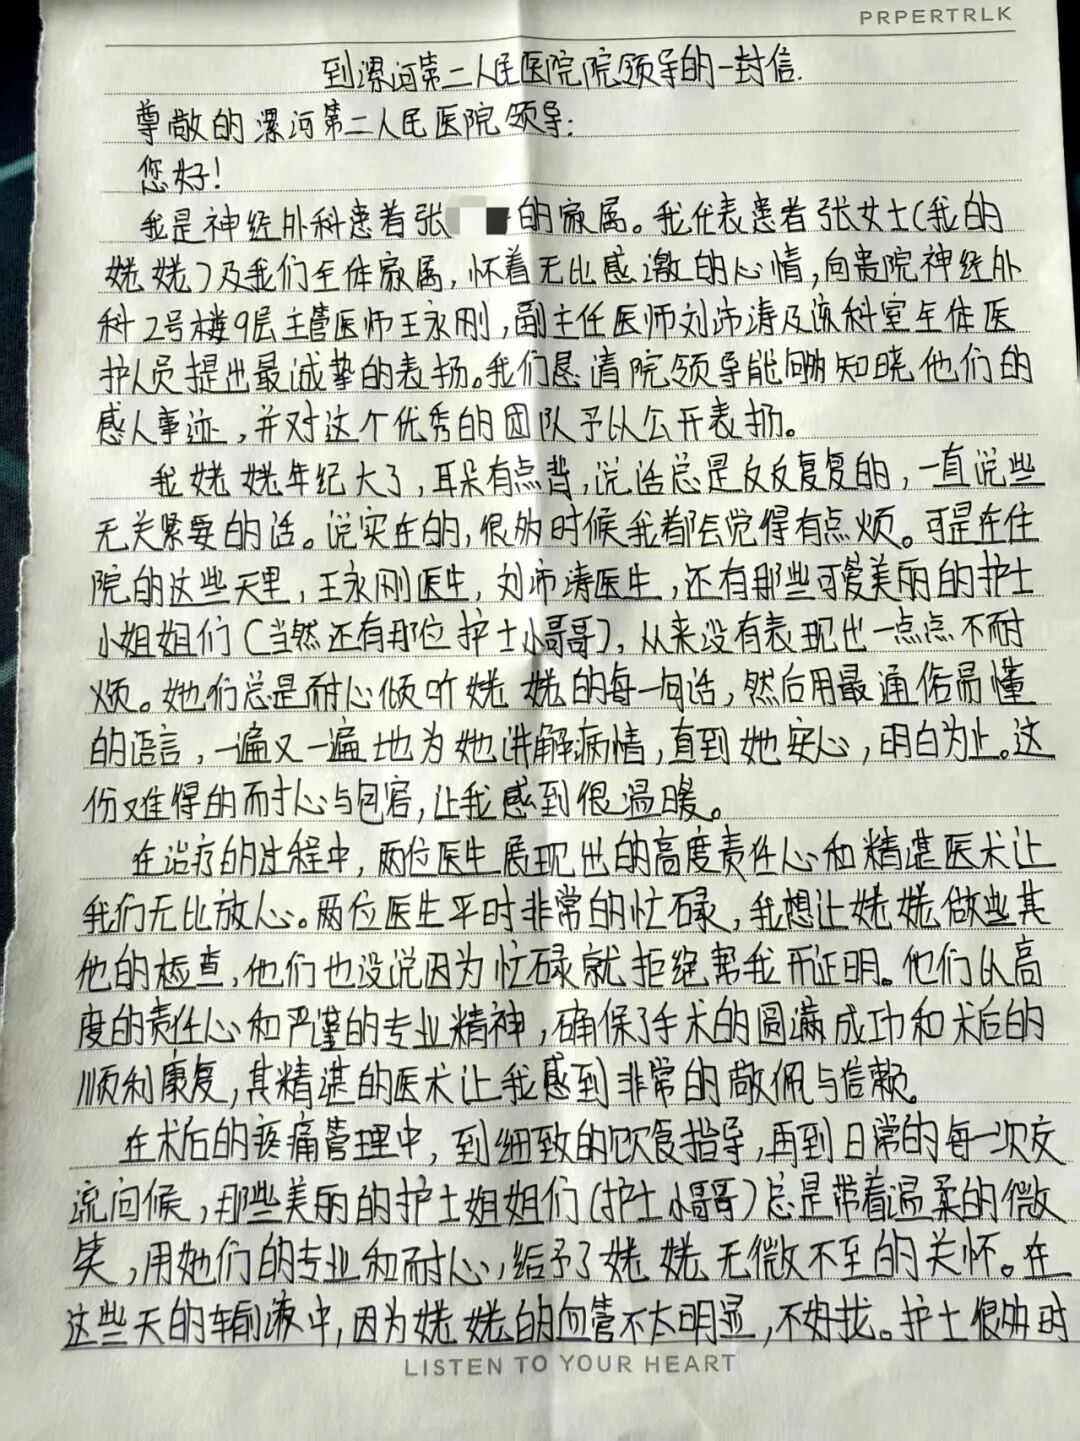 PRPERTRLK
到漯河第二人民医院院领导的一封信.
尊敬的漯河第二人民医院领导:
您好!
我是神经外科患者张 的家属。我代表患者张女士(我的
姥姥)及我们全体家属,怀着无比感激的心情,向贵院神经外
科2号楼9层主管医师王永刚,副主任医师刘沛涛及该科室全体医
护人员提出最诚挚的表扬。我们恳请院领导能够知晓他们的
感人事迹,并对这个优秀的团队予以公开表扬。
我姥姥年纪大了,耳朵有点背,说话总是反反复复的,一直说些
无关紧要的话。说实在的,很多时候我都会觉得有点烦。可是在住
院的这些天里,王永刚医生,刘沛涛医生,还有那些可爱美丽的护士
小姐姐们(当然还有那位护士小哥哥),从来没有表现出一点点不耐
烦。她们总是耐心倾听姥姥的每一句话,然后用最通俗易懂
的语言,一遍又一遍地为她讲解病情,直到她安心,明白为止。这
份难得的耐心与包容,让我感到很温暖。
在治疗的过程中,两位医生展现出的高度责任心和精湛医术让
我们无比放心。两位医生平时非常的忙碌,我想让姥姥做些其
他的检查,他们也没说因为忙碌就拒绝帮我开证明。他们以高
度的责任心和严谨的专业精神,确保了手术的圆满成功和术后的
顺利康复,其精湛的医术让我感到非常的敬佩与信赖。
在术后的疼痛管理中,到细致的饮食指导,再到日常的每一次交
流问候,那些美丽的护士姐姐们(护士小哥哥)总是带着温柔的微
笑,用她们的专业和耐心,给予了姥姥无微不至的关怀。在
这些天的输液中,因为姥姥的血管不太明显,不好找。护士很多时
LISTEN TO YOUR HEART